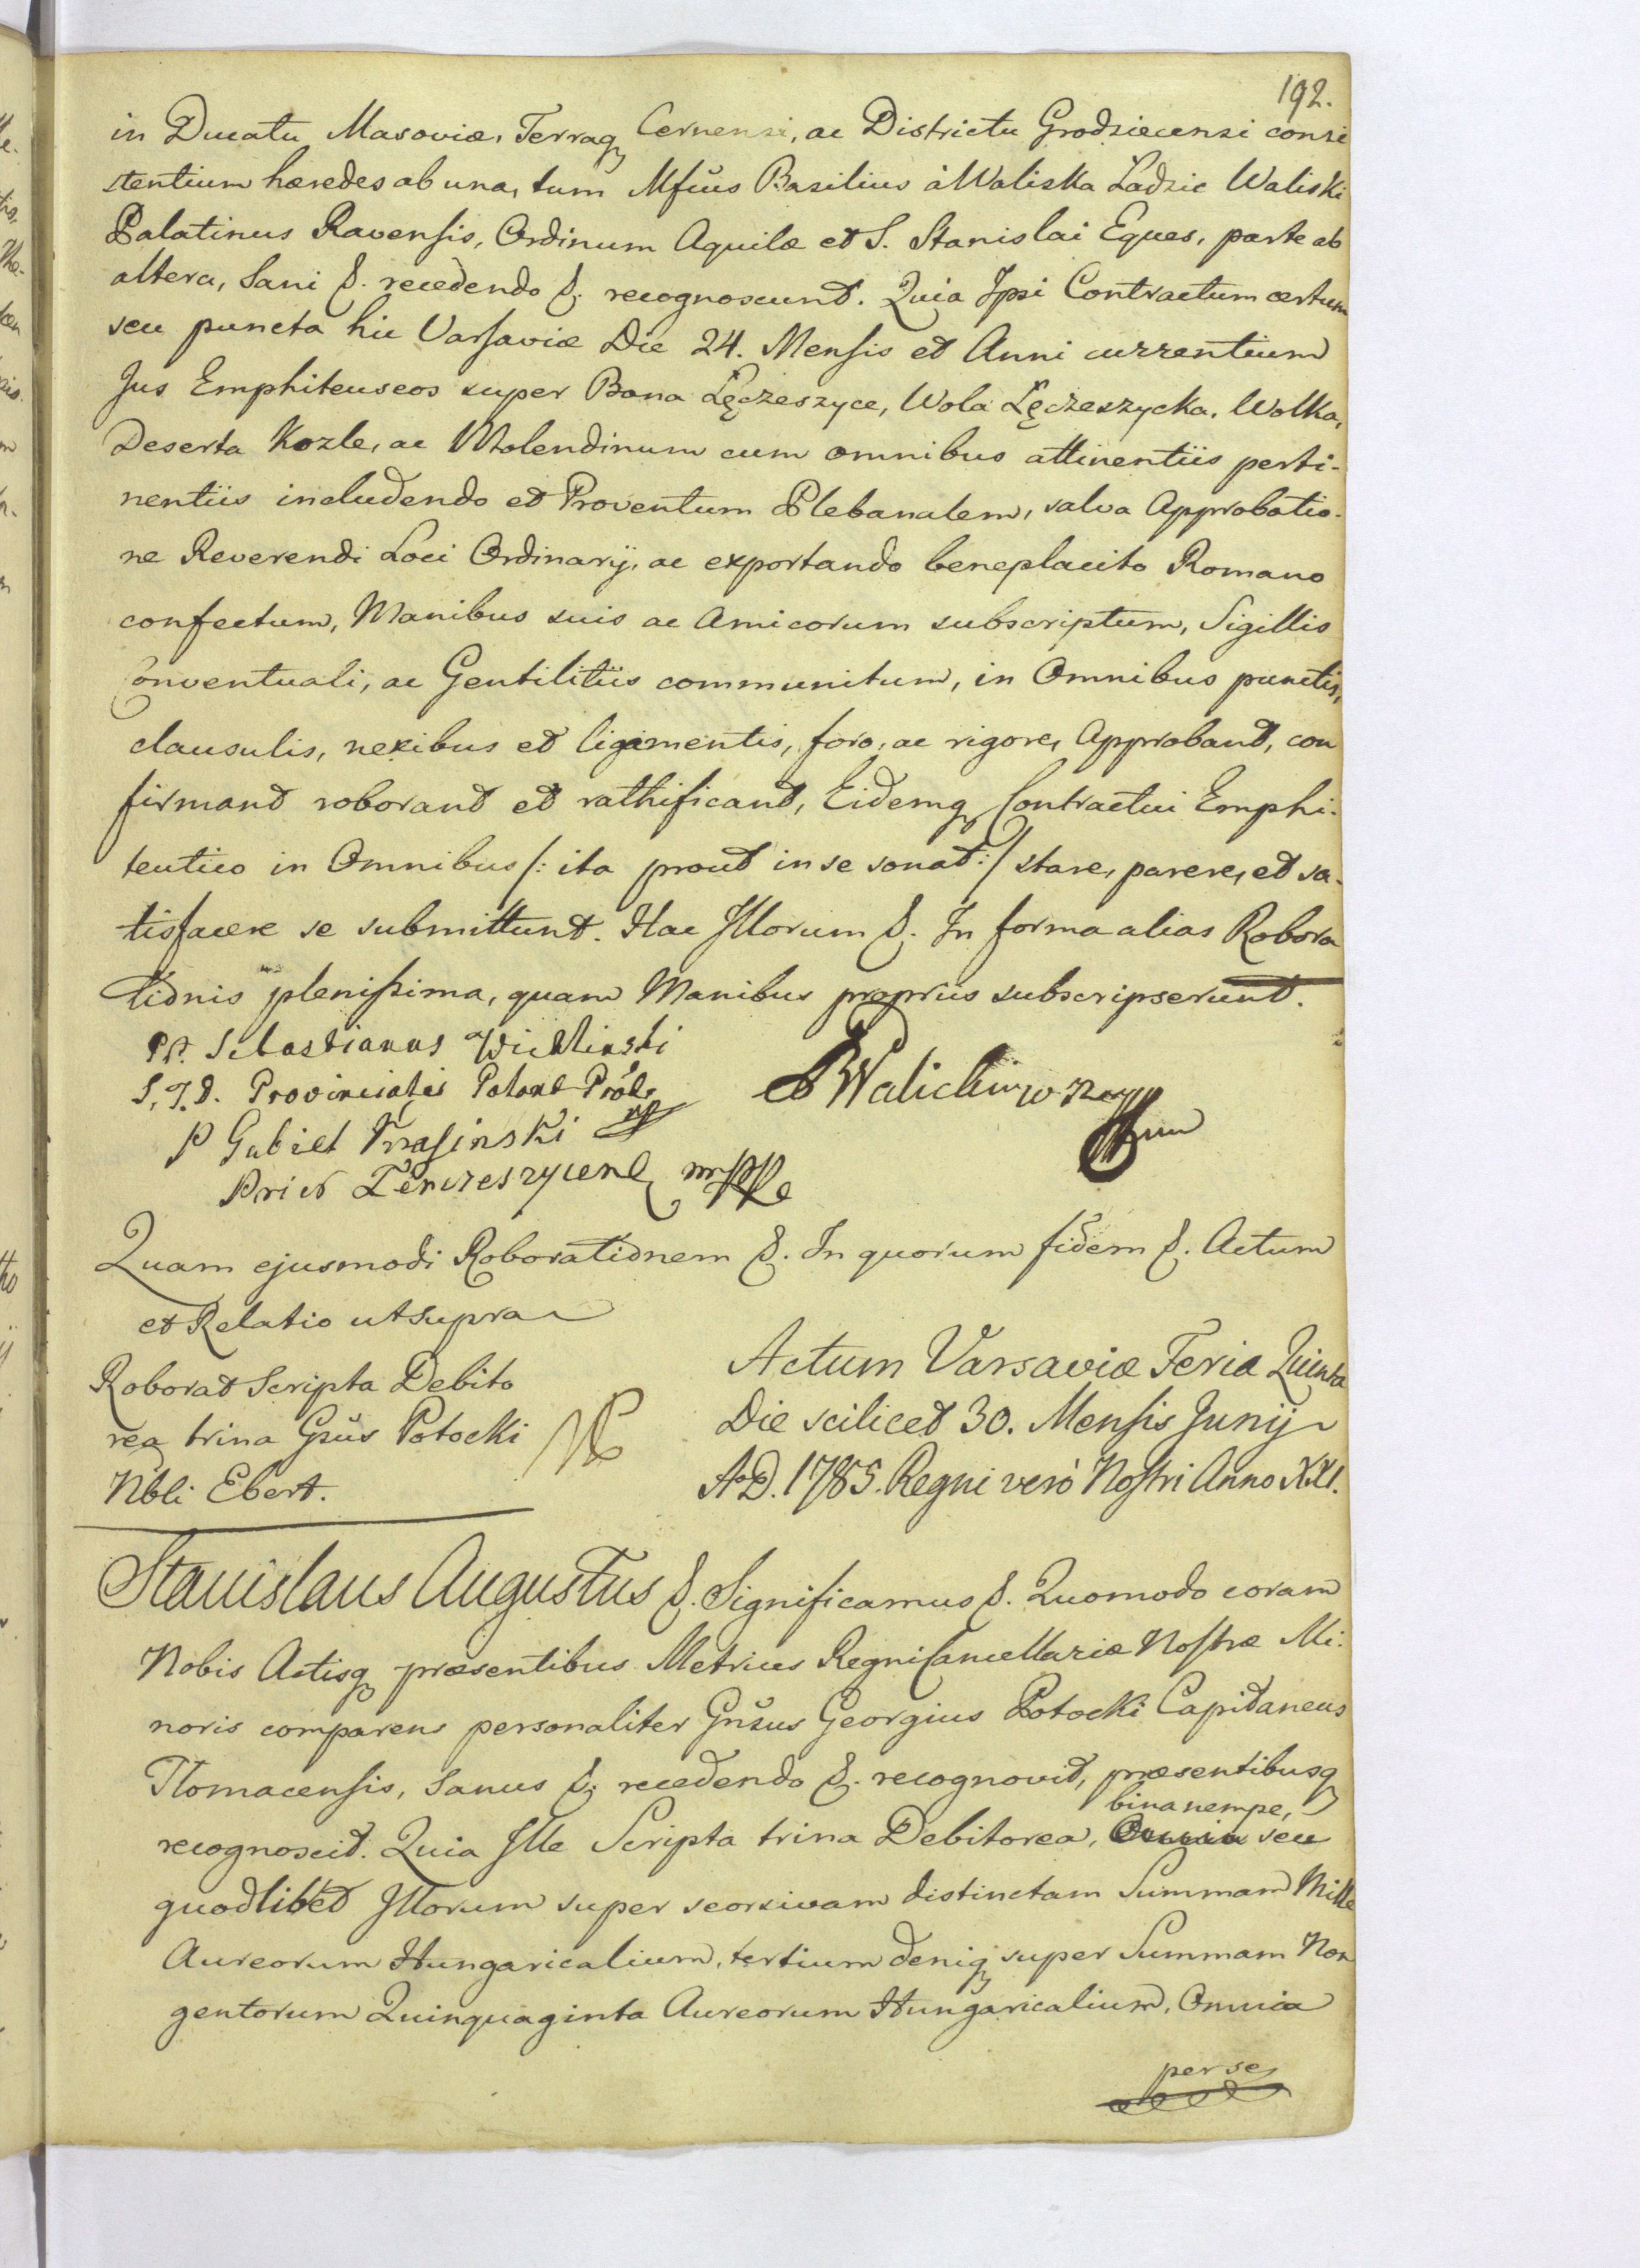 192.
in Ducatu Masoviæ, Terraq Cernensi, ac Districtu Grodziecensi consi
stentium hæredes ab una, tum Mfius Basilius à Waliska Ladzic Waliski
Palatinus Ravensis, Ordinum Aquilæ et S. Stanislai Eques, parte ab
altera, Sani &. recedendo &. recognoscunt. Quia Ipsi Contractum certum
seu puncta hic Varsaviæ Die 24. Mensis et Anni currentium
Jus Emphiteuseos super Bona Łęczeszyce, Wola Łęczeszycka, Wolka,
Deserta Kozle, ac Molendinum cum omnibus attinentiis perti-
nentiis includendo et Proventum Plebanalem, salva Approbatio-
ne Reverendi Loci Ordinarij, ac exportando beneplacito Romano
confectum, Manibus suis ac Amicorum subscriptum, Sigillis
Conventuali, ac Gentilitiis communitum, in Omnibus punctis,
clausulis, nexibus et ligamentis, foro, ac rigore, Approbant, con
firmant roborant et rathificant, Eidemq Contractui Emphi-
teutico in Omnibus /: ita prout in se sonat :/ stare, parere, et sa-
tisfacere se submittunt. Hac Illorum &. In forma alias Robora
tionis plenissima, quam Manibus propriis subscripserunt.
Sebastianus
S.T.D. Provincialis
P Gabriel Krasinski
Prior
Quam ejusmodi Roborationem &. In quorum fidem &. Actum
et Relatio ut supra
Roborat Scripta Debito
rea trina Gsus Potocki
Nbli Ebert.
Actum Varsaviæ Feria Quinta
Die scilicet 30. Mensis Junij
A.D. 1785. Regni verò Nostri Anno XXI.
Stanislaus Augustus &. Significamus &. Quomodo coram
Nobis Actisq præsentibus Metrices Regni Cancellariæ Nostræ Mi-
noris comparens personaliter Gnsus Georgius Potocki Capitaneus
Tlomacensis, Sanus &. recedendo &. recognovit, præsentibusq
recognoscit. Quia Ille Scripta trina Debitorea, bina nempe, seu
quodlibet Illorum super seorsivam distinctam Summam Mille
Aureorum Hungaricalium, tertium deniq super Summam Non
gentorum Quinquaginta Aureorum Hungaricalium, Omnia
per se